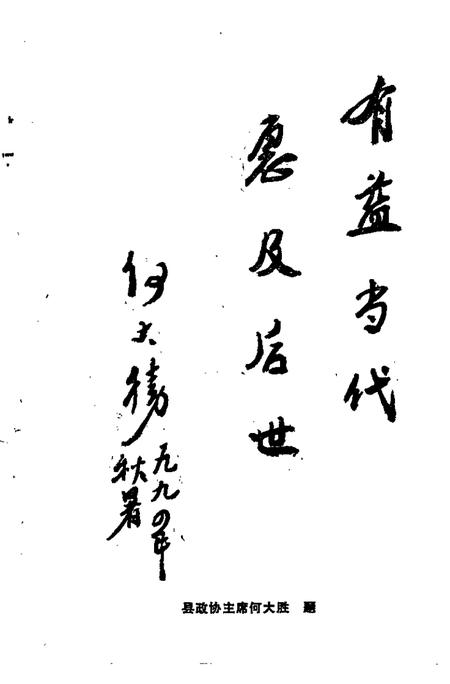 有益当代
及后世
何大勝
一九九四年
秋
县政协主席何大胜 题